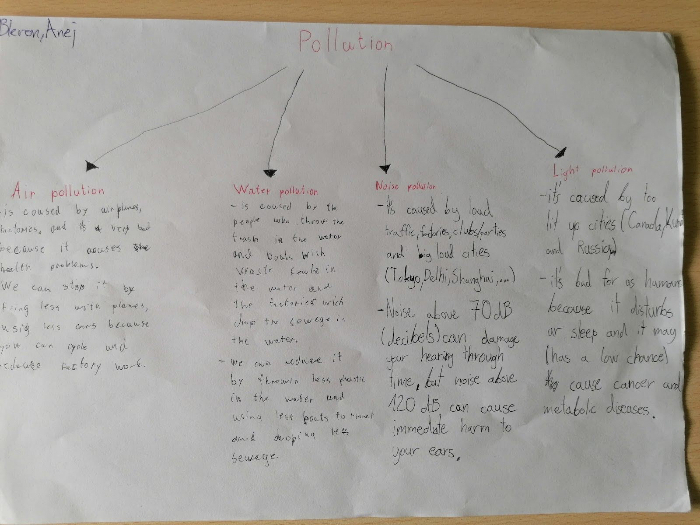 Bleron, Anej
Pollution
Air pollution
is caused by airplanes,
and is very bad
because it causes
health problems.
We can stop it by
less with planes,
less cars because
you can cycle and
reduce factory work.
Water pollution
- is caused by the
people who throw the
trash in the water
and boats wich
waste fuels in
the water and
the factories wich
dump the sewage in
the water.
- we can reduce it
by throwin less plastic
in the water and
using less boats to travel
and droping less
sewage.
Noise pollution
- It's caused by loud
traffic, factories, clubs/parties
and big loud cities
(Tokyo, Delhi, Shanghai,...)
- Noise above 70 dB
(decibels) can damage
your hearing through
time, but noise above
120 dB can cause
immediate harm to
your ears.
Light pollution
- it's caused by too
lit up cities (Canada,
and Russia)
- it's bad for us humans
because it disturbs
ar sleep and it may
(has a low chance)
cause cancer and
metabolic diseases.